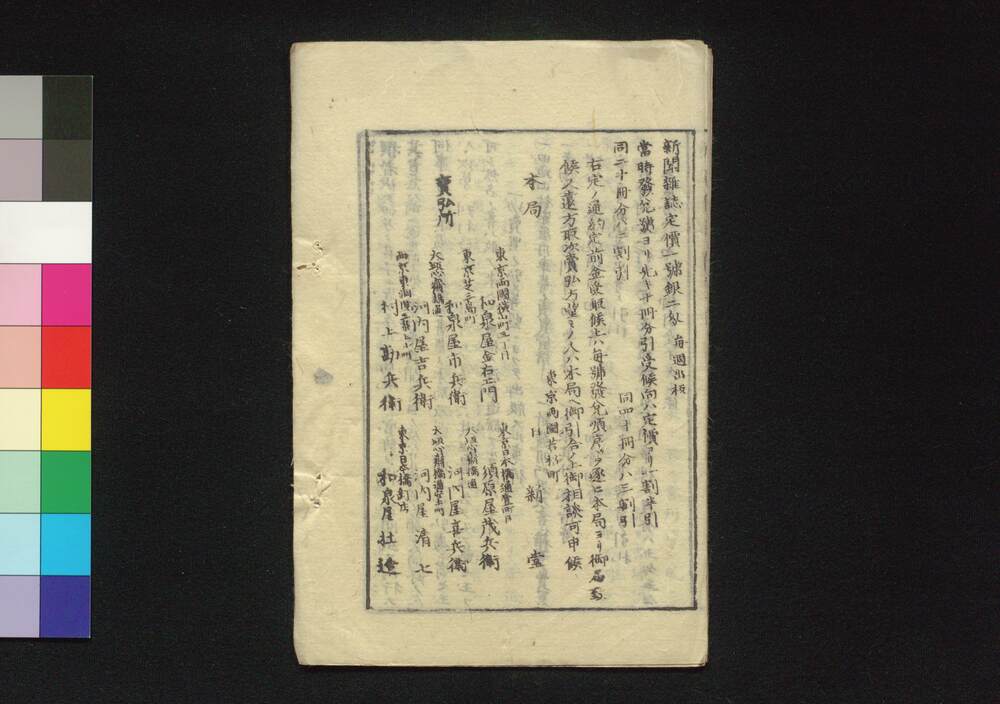 新聞雜誌定價一號銀二匁 毎週出板
當時發兌號ヨリ先キ十冊分引受候向ハ定價ヨリ一割半引
同二十冊分ハ二割引 同四十冊分ハ三割引
右定ノ通約定前金受取候上ハ毎號發兌順序ヲ逐ヒ本局ヨリ御届ケ可
候又遠方取次賣弘方望ミノ人ハ本局ヘ御引合ノ上御相談可申候
東京兩國若松町
本局 日新堂
賣弘所
東京兩國横山町三丁目
和泉屋金右エ門
東京芝三島町
和泉屋市兵衛
大坂心齋橋通
河内屋吉兵衛
村上勘兵衛
東京日本橋通壹町目
須原屋茂兵衛
大坂心齋橋通
河内屋喜兵衛
大坂心齋橋通
河内屋清七
和泉屋壯造